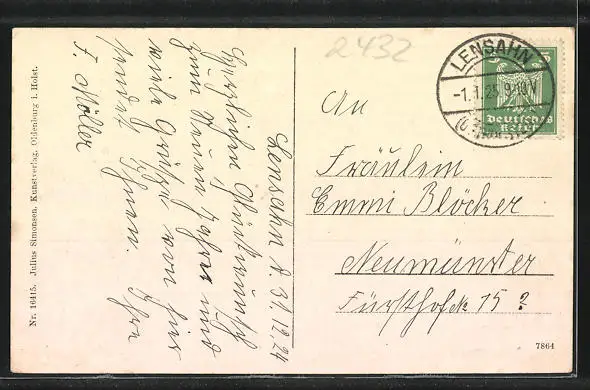 Lensahn d 31.12.24
Herzlichen Glückwunsch
zum Neuen Jahre und
viele Grüße von hier
sendet Ihnen. Ihre
F. Möller
Nr. 16415. Julius Simonsen, Kunstverlag, Oldenburg i. Holst.
2432
LENSAHN
-1.1.25. 9-10V
5
Deutsches
Reich
An
Fräulein
Emmi Blöcker
Neumünster
Fürsthofstr 15?
7864